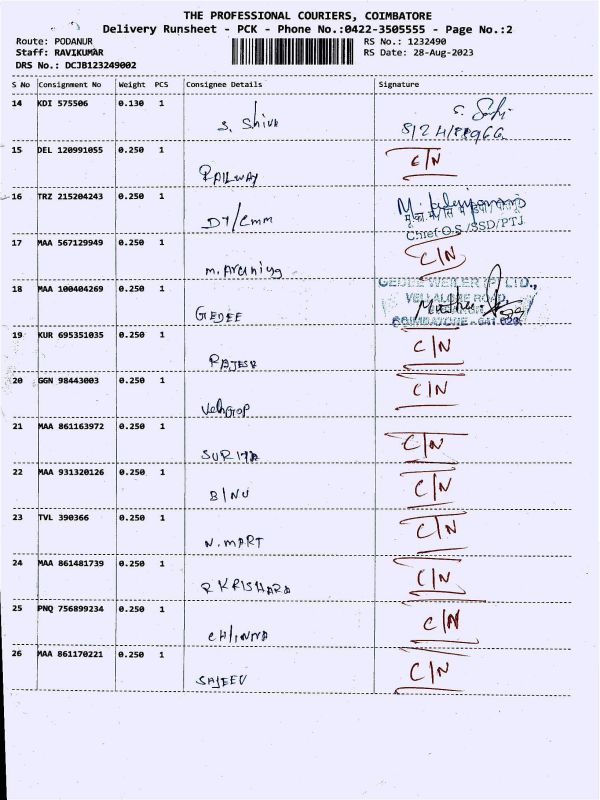 THE PROFESSIONAL COURIERS, COIMBATORE
Delivery Runsheet - PCK - Phone No.:0422-3505555 - Page No.:2
Route: PODANUR
RS No.: 1232490
Staff: RAVIKUMAR
RS Date: 28-Aug-2023
DRS No.: DCJB123249002
S No Consignment No Weight PCS Consignee Details Signature
14 KDI 575506 0.130 1 S. Shiva
15 DEL 120991055 0.250 1 RAILWAY C/N
16 TRZ 215204243 0.250 1 DY/Cmm M.
Chief O.S /SSD/PTJ
17 MAA 567129949 0.250 1 C/N
18 MAA 100404269 0.250 1 GEDEE
GEDEE WEILER (P) LTD.,
VELLALORE ROAD,
COIMBATORE - 641 023
19 KUR 695351035 0.250 1 RAJESH C/N
20 GGN 98443003 0.250 1 C/N
21 MAA 861163972 0.250 1 C/N
22 MAA 931320126 0.250 1 BINU C/N
23 TVL 390366 0.250 1 N. MART C/N
24 MAA 861481739 0.250 1 C/N
25 PNQ 756899234 0.250 1 CHINNA C/N
26 MAA 861170221 0.250 1 SAJEEV C/N